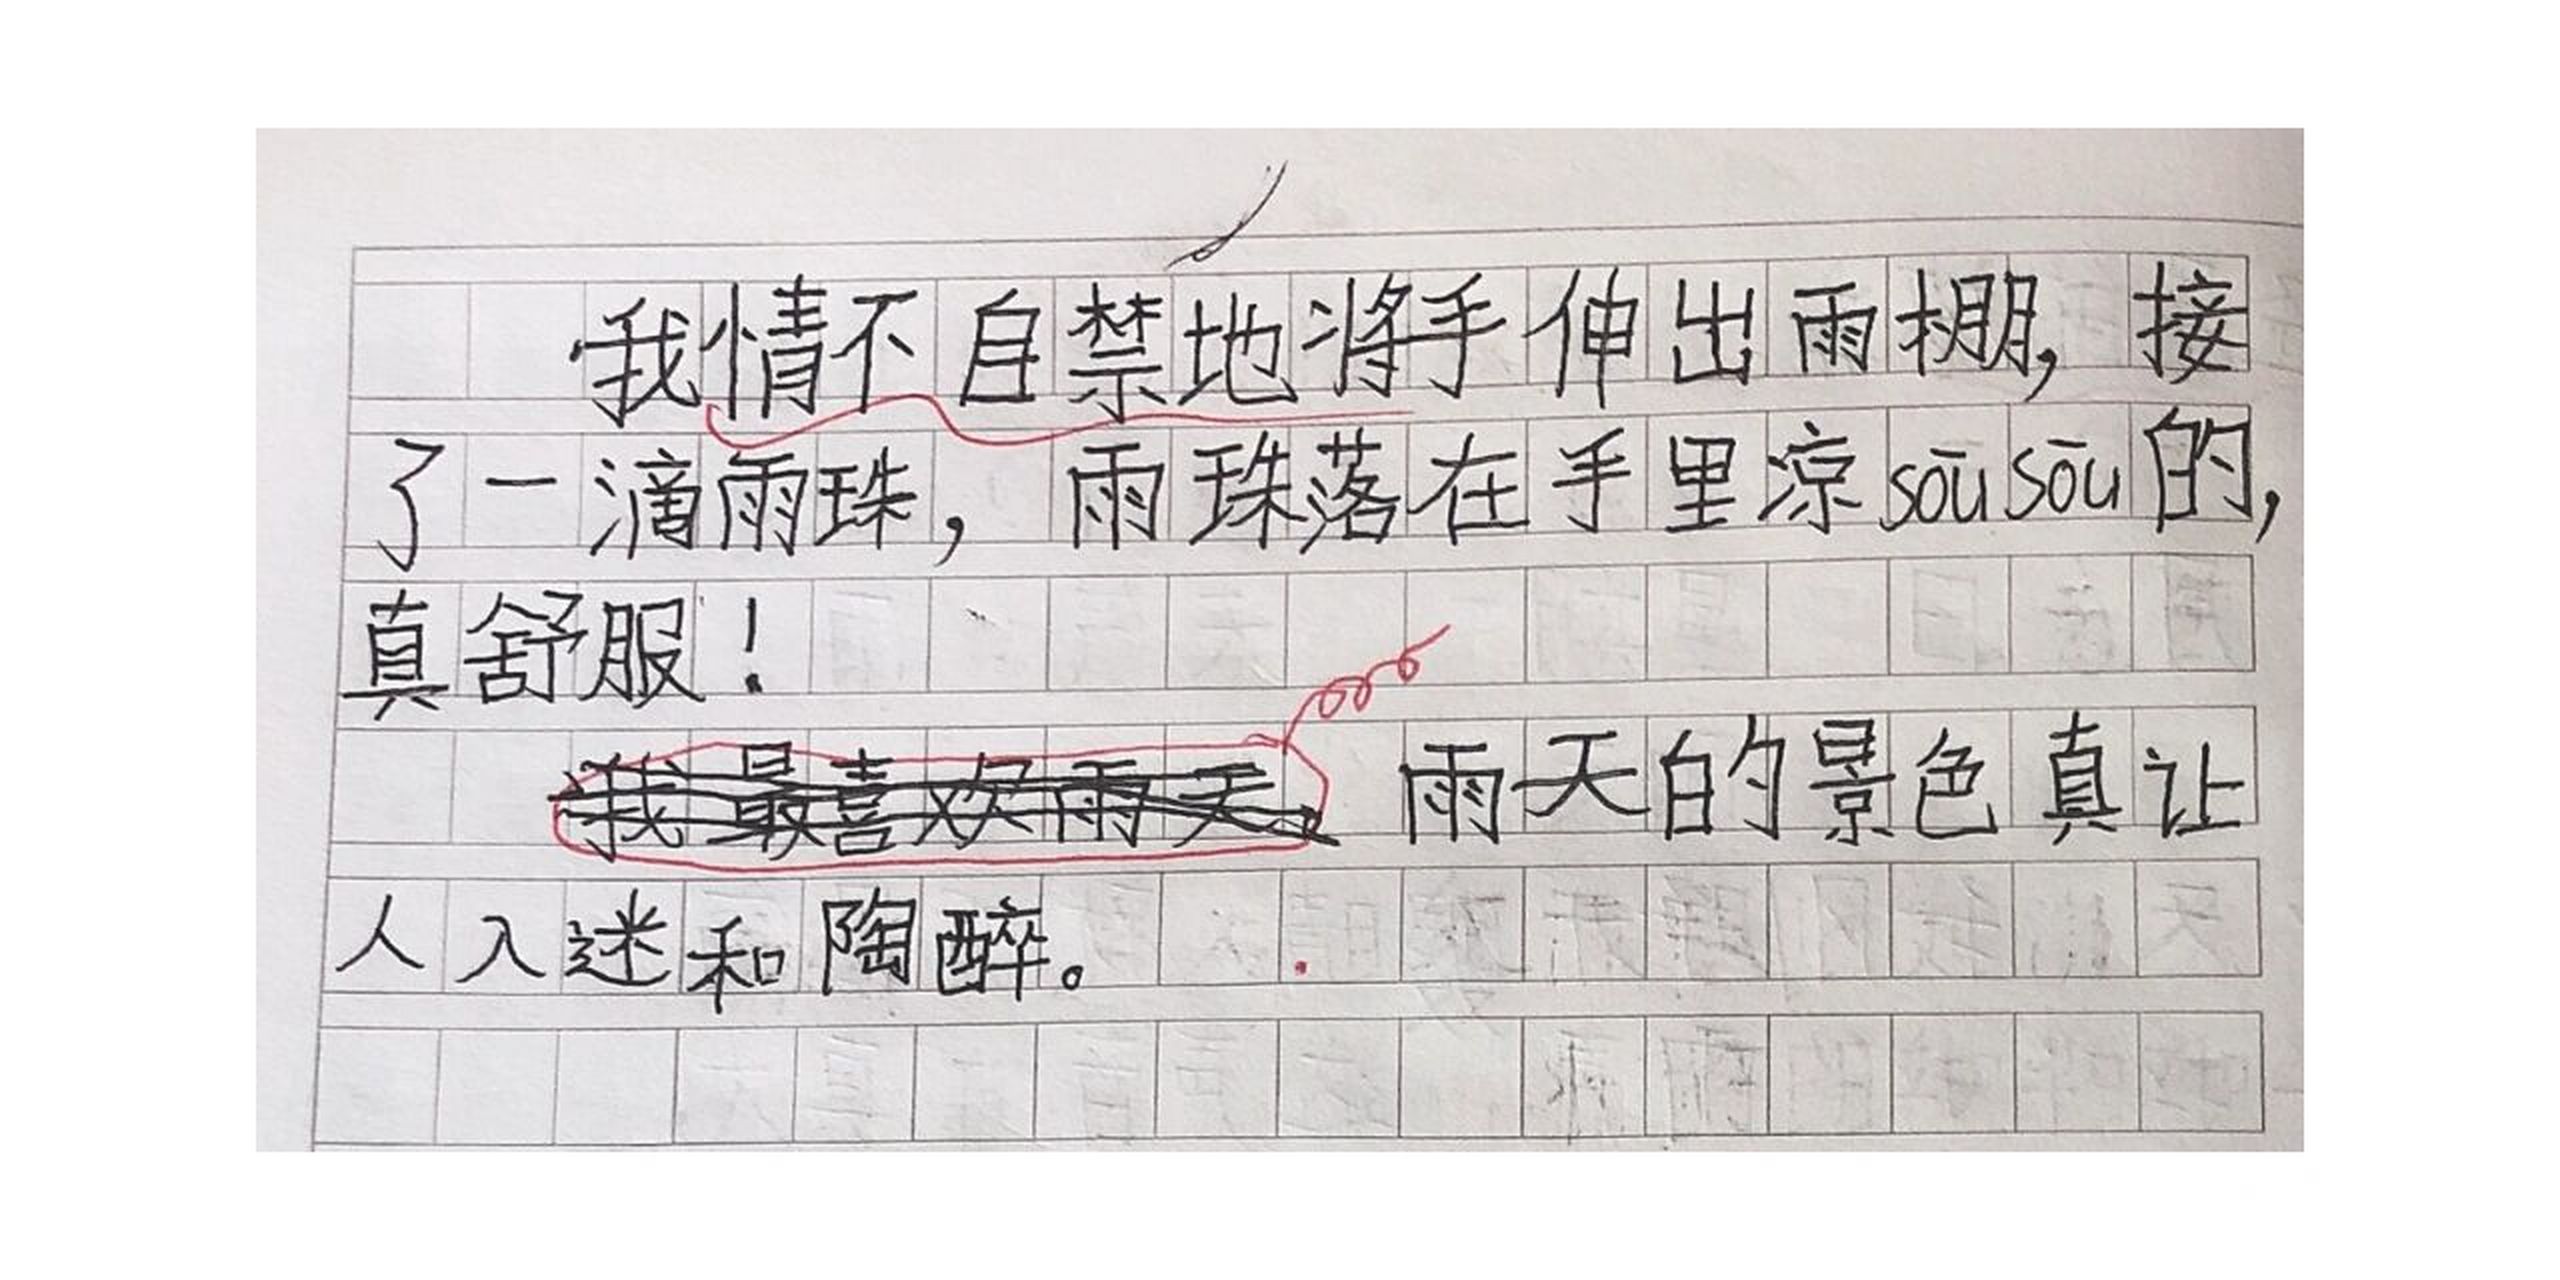 我情不自禁地将手伸出雨棚，接
了一滴雨珠，雨珠落在手里凉sōusōu的，
真舒服！
我最喜欢雨天 雨天的景色真让
人入迷和陶醉。